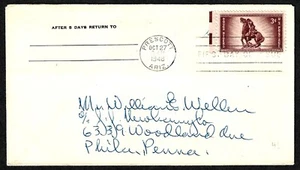 AFTER 5 DAYS RETURN TO
PRESCOTT
OCT 27
1948
ARIZ.
3¢
FIRST DAY OF ISSUE
Mr. William E. Weller
6339 Woodland Ave
Phila. Penna.